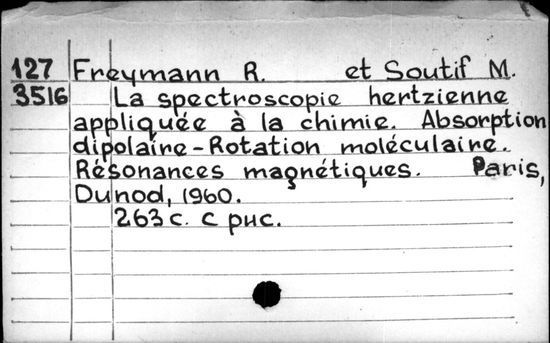 127 Freymann R. et Soutif M.
3516 La spectroscopie hertzienne
appliquée à la chimie. Absorption
dipolaire-Rotation moléculaire.
Résonances magnétiques. Paris,
Dunod, 1960.
263 с. с рис.